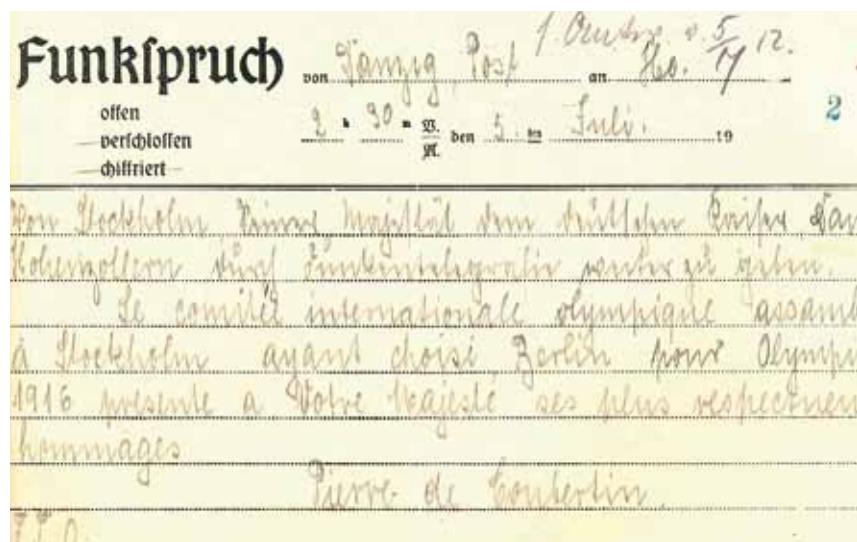 Funkſpruch von Danzig, Post an Ho. 5/7 12.
offen
verſchloſſen
chiffriert
2 30 V. A. den 5. ten Juli. 19
2
Von Stockholm Seiner Majestät dem deutschen Kaiser
Hohenzollern durch Funkentelegrafie weiter zu geben.
Le comitée internationale olympique assamb
à Stockholm ayant choisi Berlin pour Olympi
1916 présente a Votre Majesté ses plus respectueu
hommages
Pierre de Coubertin.